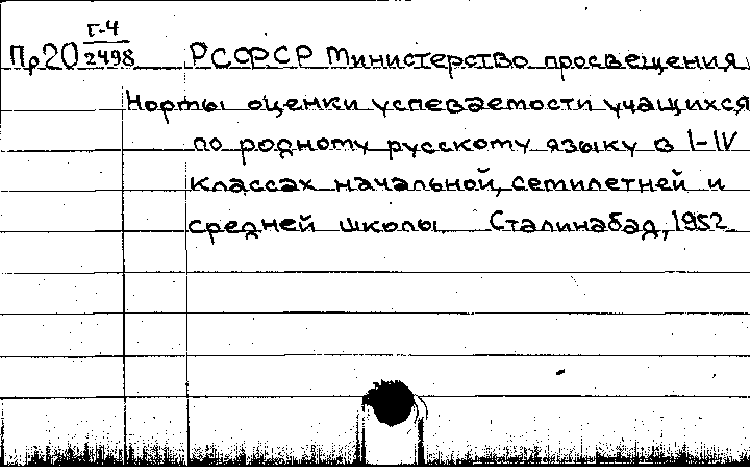 Пр20 Г-4/2498 РСФСР Министерство просвещения
Нормы оценки успеваемости учащихся
по родному русскому языку в I-IV
классах начальной, семилетней и
средней школы. Сталинабад, 1952